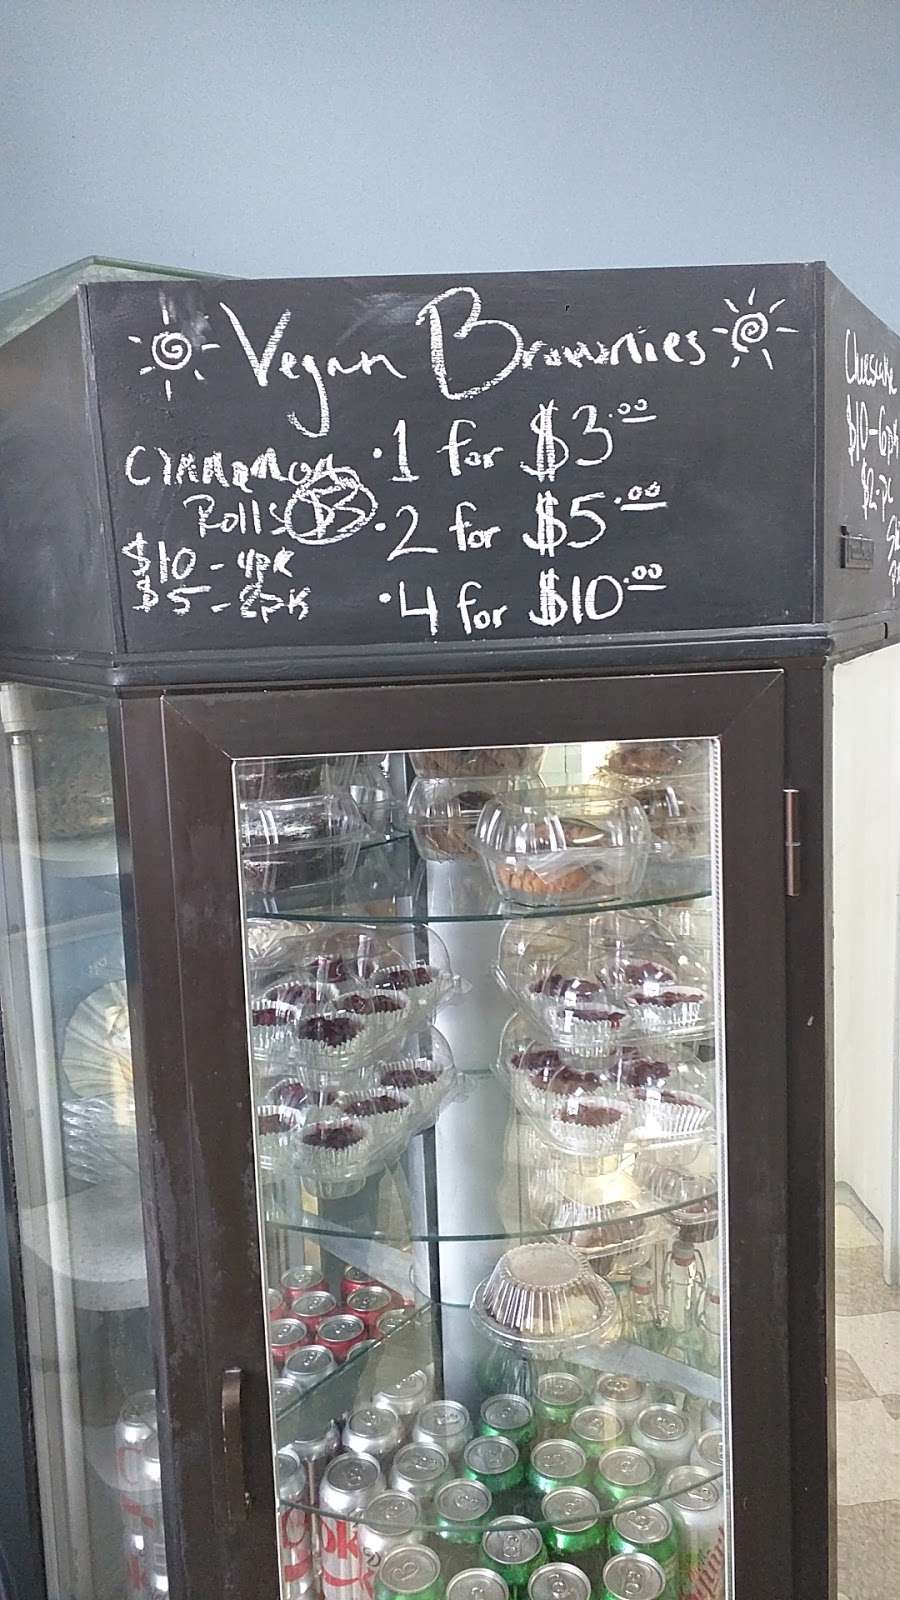 Vegan Brownies
• 1 for $3.00
• 2 for $5.00
• 4 for $10.00
Cinnamon
Rolls $3
$10 - 4pk
$5 - 2pk
$10-6pk
$2-pc